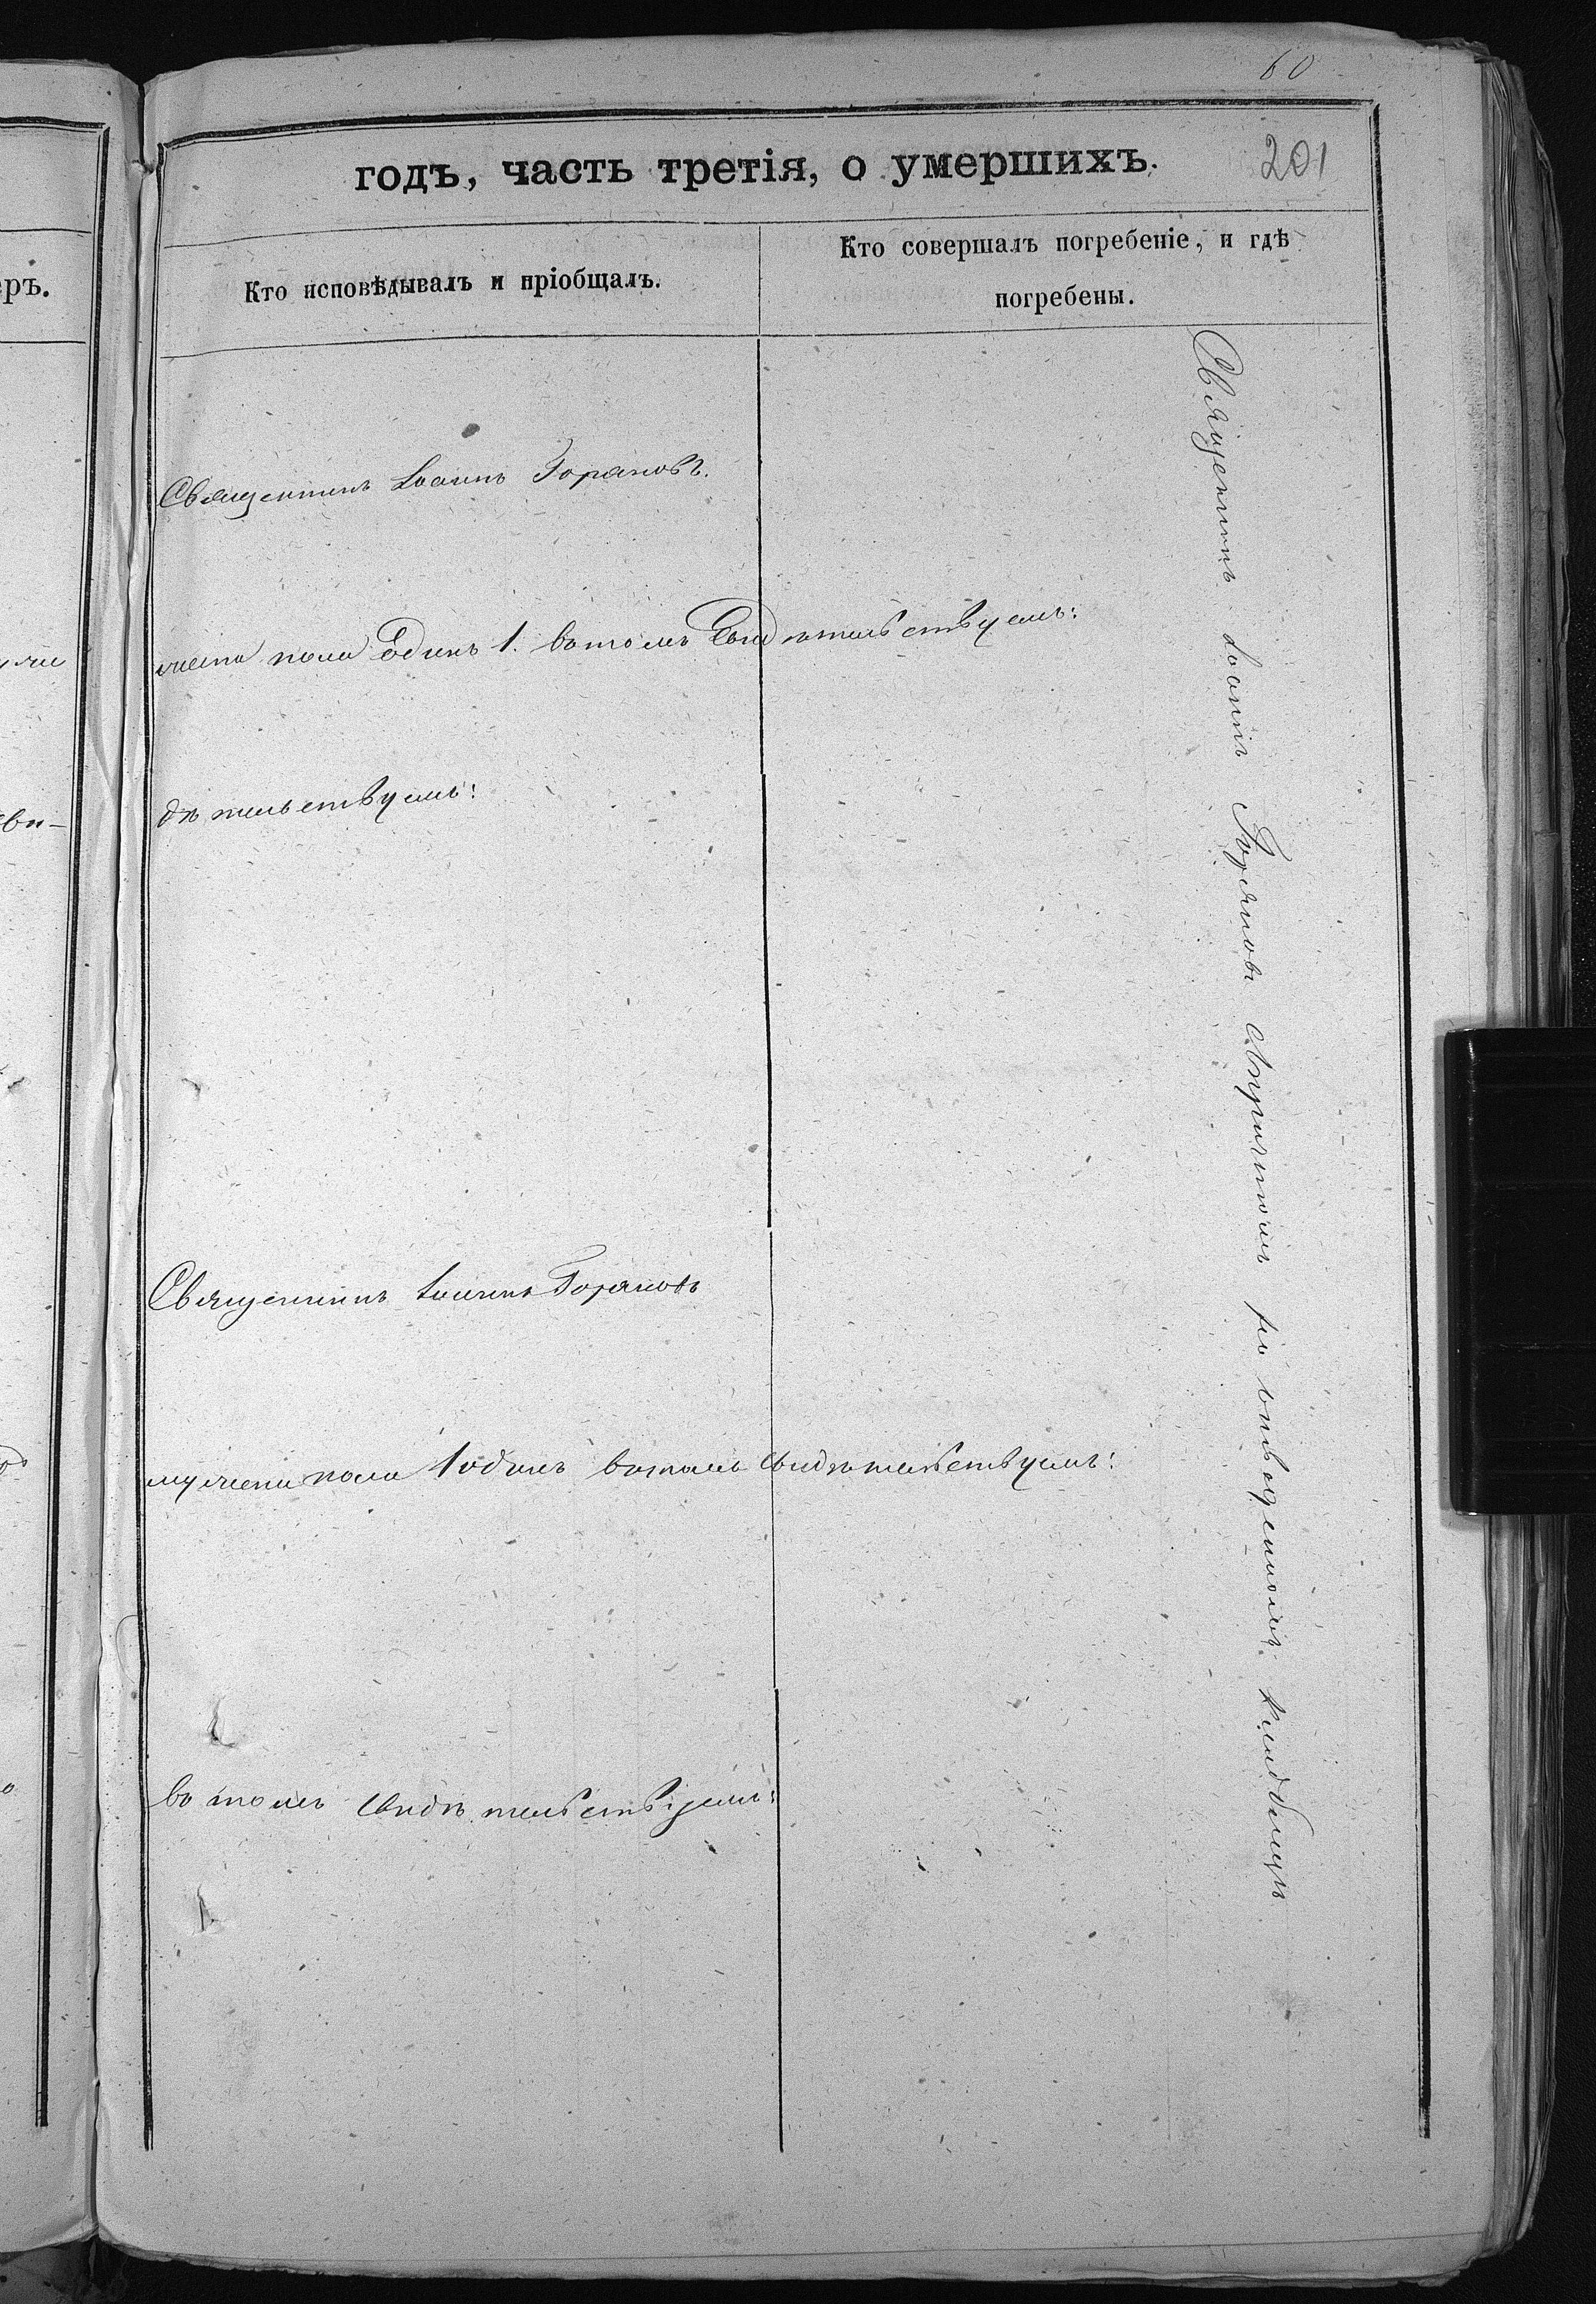 60
годъ, часть третія, о умершихъ.
201
еръ.
Кто исповѣдывалъ и пріобщалъ.
Кто совершалъ погребеніе, и гдѣ
погребены.
Священникъ Іоаннъ Горяновъ.
пола Единъ 1. въ томъ Свидѣтельствуемъ:
дѣтельствуемъ:
Священникъ Іоаннъ Горяновъ
пола 1 одинъ въ томъ Свидѣтельствуемъ:
въ томъ Свидѣтельствуемъ:
Священникъ Іоаннъ Горяновъ Съ причтомъ на отведенномъ кладбищѣ